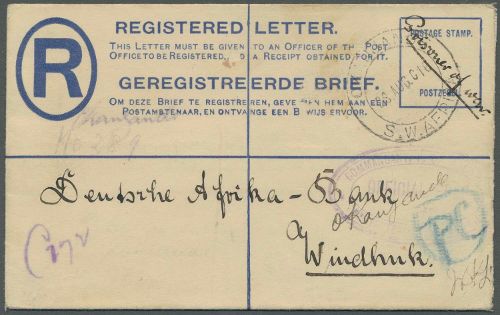 REGISTERED LETTER.
THIS LETTER MUST BE GIVEN TO AN OFFICER OF THE POST
OFFICE TO BE REGISTERED, A RECEIPT OBTAINED FOR IT.
R
GEREGISTREERDE BRIEF.
OM DEZE BRIEF TE REGISTREREN, GEVE HEM AAN EEN
POSTAMBTENAAR, EN ONTVANGE EEN BEWIJS ERVOOR.
POSTAGE STAMP.
POSTZEGEL
Prisoner of war
S.W. AFR
Okahandja
No 289
Deutsche Afrika-Bank
Okanjande
Windhuk.
PC